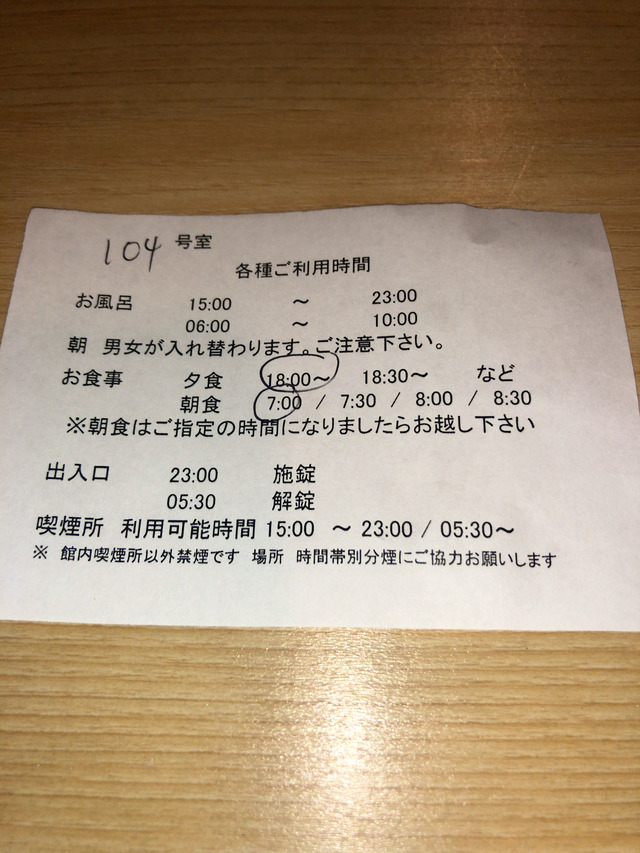 104 号室
各種ご利用時間
お風呂 15:00 ～ 23:00
06:00 ～ 10:00
朝 男女が入れ替わります。ご注意下さい。
お食事 夕食 18:00～ 18:30～ など
朝食 7:00 / 7:30 / 8:00 / 8:30
※朝食はご指定の時間になりましたらお越し下さい
出入口 23:00 施錠
05:30 解錠
喫煙所 利用可能時間 15:00 ～ 23:00 / 05:30～
※ 館内喫煙所以外禁煙です 場所 時間帯別分煙にご協力お願いします